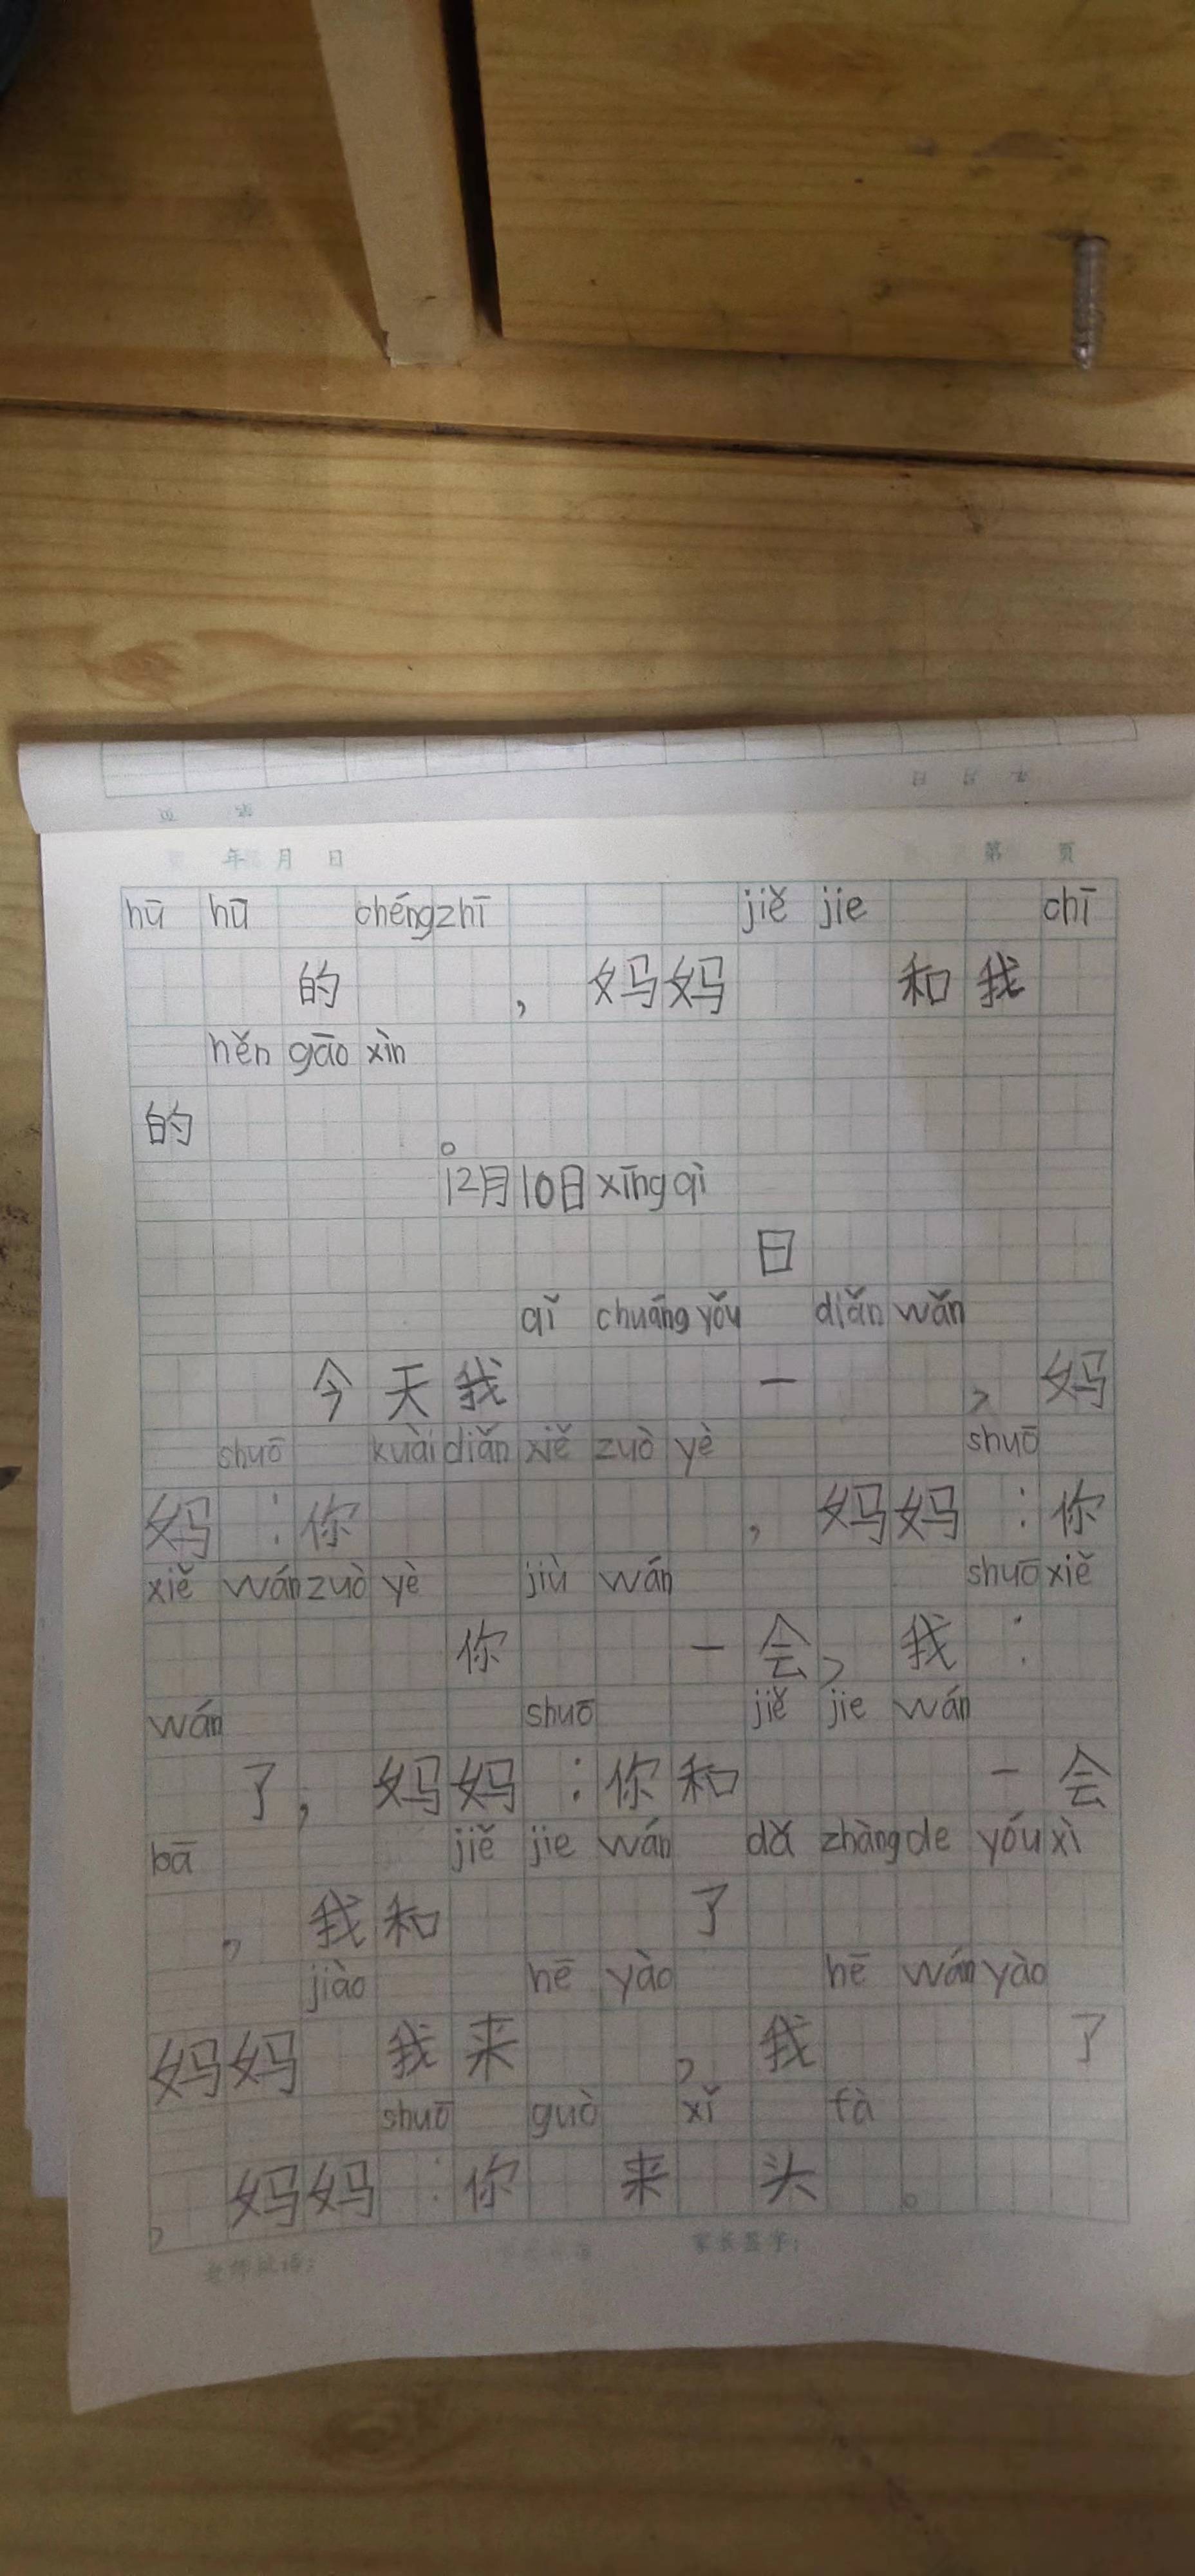 年 月 日 第 页
hū hū chéngzhī jiě jie chī
的 ，妈妈 和我
hěn gāo xìn
的 。
12月10日xīng qì
日
qǐ chuáng yǒu diǎn wǎn
今天我 一 ，妈
shuō kuài diǎn xiě zuò yè shuō
妈 ：你 ，妈妈 ：你
xiě wán zuò yè jiù wán shuō xiě
你 一会，我 ：
wán shuō jiě jie wán
了，妈妈 ：你和 一会
bā jiě jie wán dǎ zhàng de yóu xì
，我和 了
jiào hē yào hē wán yào
妈妈 我来 ，我 了
shuō guò xǐ fà
，妈妈 ：你 来 头 。